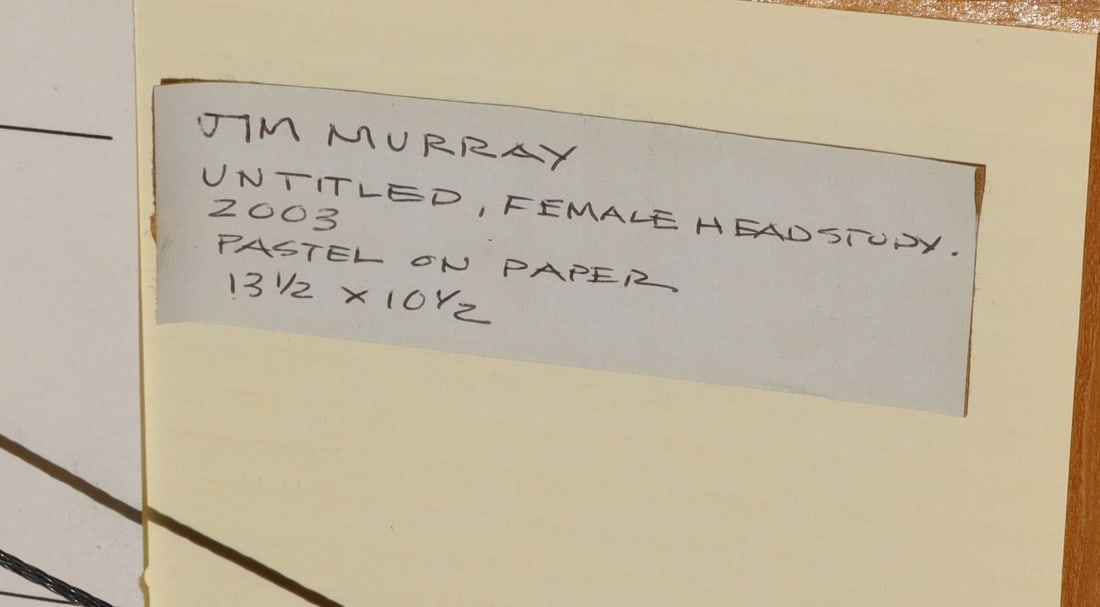 JIM MURRAY
UNTITLED, FEMALE HEADSTUDY.
2003
PASTEL ON PAPER
13 1/2 X 10 1/2